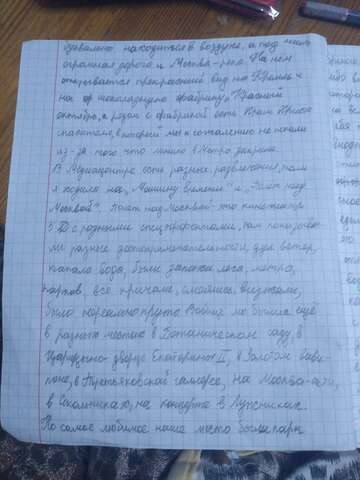 буквально находится в воздухе, а под ним
огромная дорога и Москва-река. На нем
открывается прекрасный вид на Кремль и
на шоколадную фабрику "Красный
октябрь", а рядом с фабрикой есть Храм Христа
спасителя, в который мы к сожалению не попали
из-за того что линию в метро закрыли.
В Медиацентре есть разные развлечения, мы
я ходили на "Машину времени" и "Полёт над
Москвой". Полёт над Москвой- это кинотеатр
5D с разными спецэффектами, там показыва-
ли разные достопримечательности, дул ветер,
капала вода, были запахи леса, метро,
парков, все кричали, смеялись, визжали,
было нереально круто. Вообще мы были ещё
в разных местах: в Ботаническом саду, в
Царицыно- дворце Екатерины II, в Золотом Вави-
лоне, в Третьяковской галлерее, на Москва-сити,
в Сокольниках, на концерте в Лужниках.
Но самое любимое наше место были парк